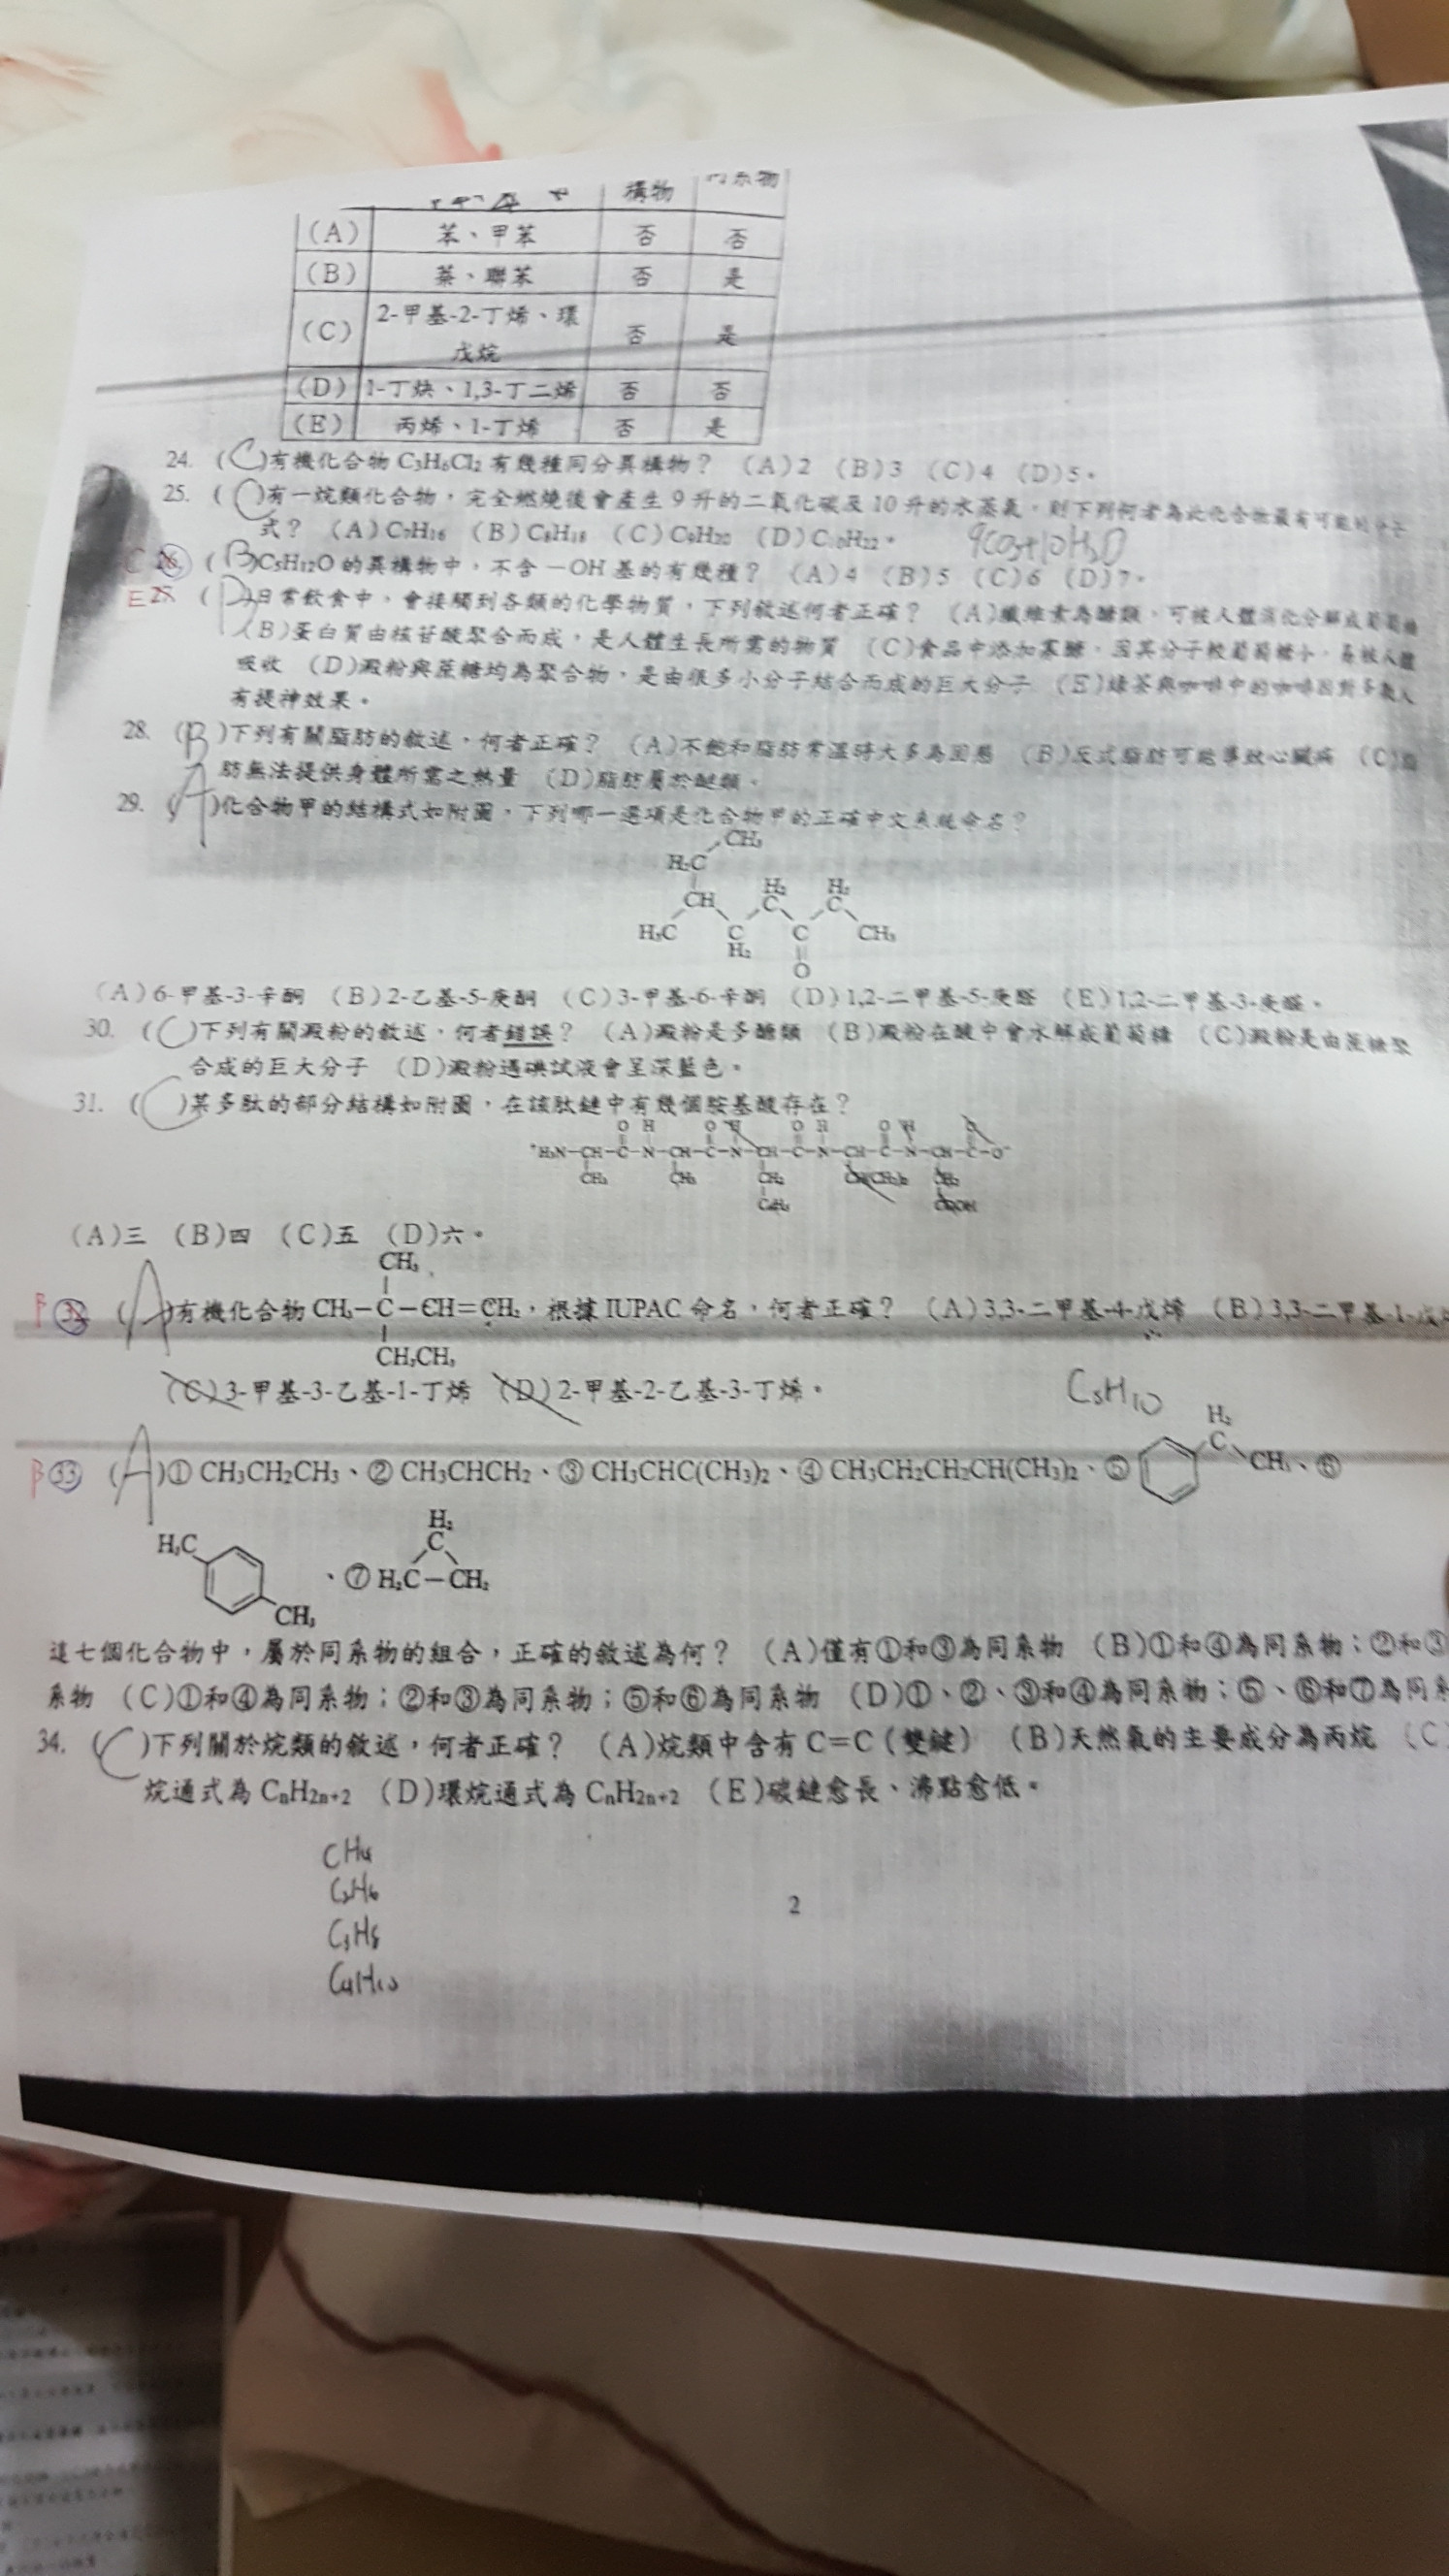 構物 同系物
(A) 苯、甲苯 否 否
(B) 萘、聯苯 否 是
(C) 2-甲基-2-丁烯、環戊烷 否 是
(D) 1-丁炔、1,3-丁二烯 否 否
(E) 丙烯、1-丁烯 否 是
24. (C)有機化合物 C3H6Cl2 有幾種同分異構物? (A)2 (B)3 (C)4 (D)5。
25. (C)有一烷類化合物,完全燃燒後會產生 9 升的二氧化碳及 10 升的水蒸氣,則下列何者為此化合物最有可能的分子
式? (A)C7H16 (B)C8H18 (C)C9H20 (D)C10H22。 9CO2+10H2O
C 26. (B)C5H12O 的異構物中,不含-OH 基的有幾種? (A)4 (B)5 (C)6 (D)7。
E 27. (D)日常飲食中,會接觸到各類的化學物質,下列敘述何者正確? (A)纖維素為醣類,可被人體消化分解成葡萄糖
(B)蛋白質由核苷酸聚合而成,是人體生長所需的物質 (C)食品中添加寡醣,因其分子較葡萄糖小,易被人體
吸收 (D)澱粉與蔗糖均為聚合物,是由很多小分子結合而成的巨大分子 (E)綠茶與咖啡中的咖啡因對多數人
有提神效果。
28. (B)下列有關脂肪的敘述,何者正確? (A)不飽和脂肪常溫時大多為固態 (B)反式脂肪可能導致心臟病 (C)脂
肪無法提供身體所需之熱量 (D)脂肪屬於醚類。
29. (A)化合物甲的結構式如附圖,下列哪一選項是化合物甲的正確中文系統命名?
CH3
H2C
CH H2 C H2 C
H3C C H2 C CH3
O
(A)6-甲基-3-辛酮 (B)2-乙基-5-庚酮 (C)3-甲基-6-辛酮 (D)1,2-二甲基-5-庚醛 (E)1,2-二甲基-3-庚醛。
30. (C)下列有關澱粉的敘述,何者錯誤? (A)澱粉是多醣類 (B)澱粉在酸中會水解成葡萄糖 (C)澱粉是由蔗糖聚
合成的巨大分子 (D)澱粉遇碘試液會呈深藍色。
31. (C)某多肽的部分結構如附圖,在該肽鏈中有幾個胺基酸存在?
O H O H O H O H O
+H3N-CH-C-N-CH-C-N-CH-C-N-CH-C-N-CH-C-O-
CH3 CH3 CH2 CH(CH3)2 CH2
C6H5 COOH
(A)三 (B)四 (C)五 (D)六。
CH3
B 32. (A)有機化合物 CH3-C-CH=CH2,根據 IUPAC 命名,何者正確? (A)3,3-二甲基-4-戊烯 (B)3,3-二甲基-1-戊
CH2CH3
(C)3-甲基-3-乙基-1-丁烯 (D)2-甲基-2-乙基-3-丁烯。
C5H10
B 33. (A)① CH3CH2CH3、② CH3CHCH2、③ CH3CHC(CH3)2、④ CH3CH2CH2CH(CH3)2、⑤ H2 C CH3、⑥
H3C CH3、⑦ H2 C H2C-CH2
這七個化合物中,屬於同系物的組合,正確的敘述為何? (A)僅有①和③為同系物 (B)①和④為同系物;②和③
系物 (C)①和④為同系物;②和③為同系物;⑤和⑥為同系物 (D)①、②、③和④為同系物;⑤、⑥和⑦為同系
34. (C)下列關於烷類的敘述,何者正確? (A)烷類中含有 C=C(雙鍵) (B)天然氣的主要成分為丙烷 (C)
烷通式為 CnH2n+2 (D)環烷通式為 CnH2n+2 (E)碳鏈愈長、沸點愈低。
CH4
C2H6
C3H8
C4H10
2